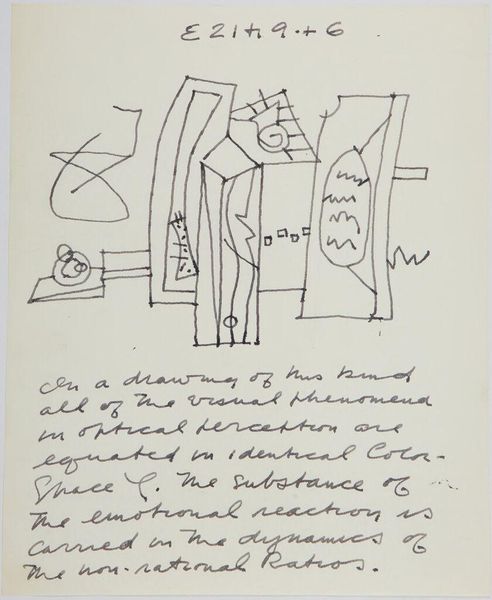 E 21 + 9 + 6
In a drawing of this kind
all of the visual phenomena
in optical perception are
equated in identical Color-
Space. The substance of
the emotional reaction is
carried in the dynamics of
the non-rational Ratios.